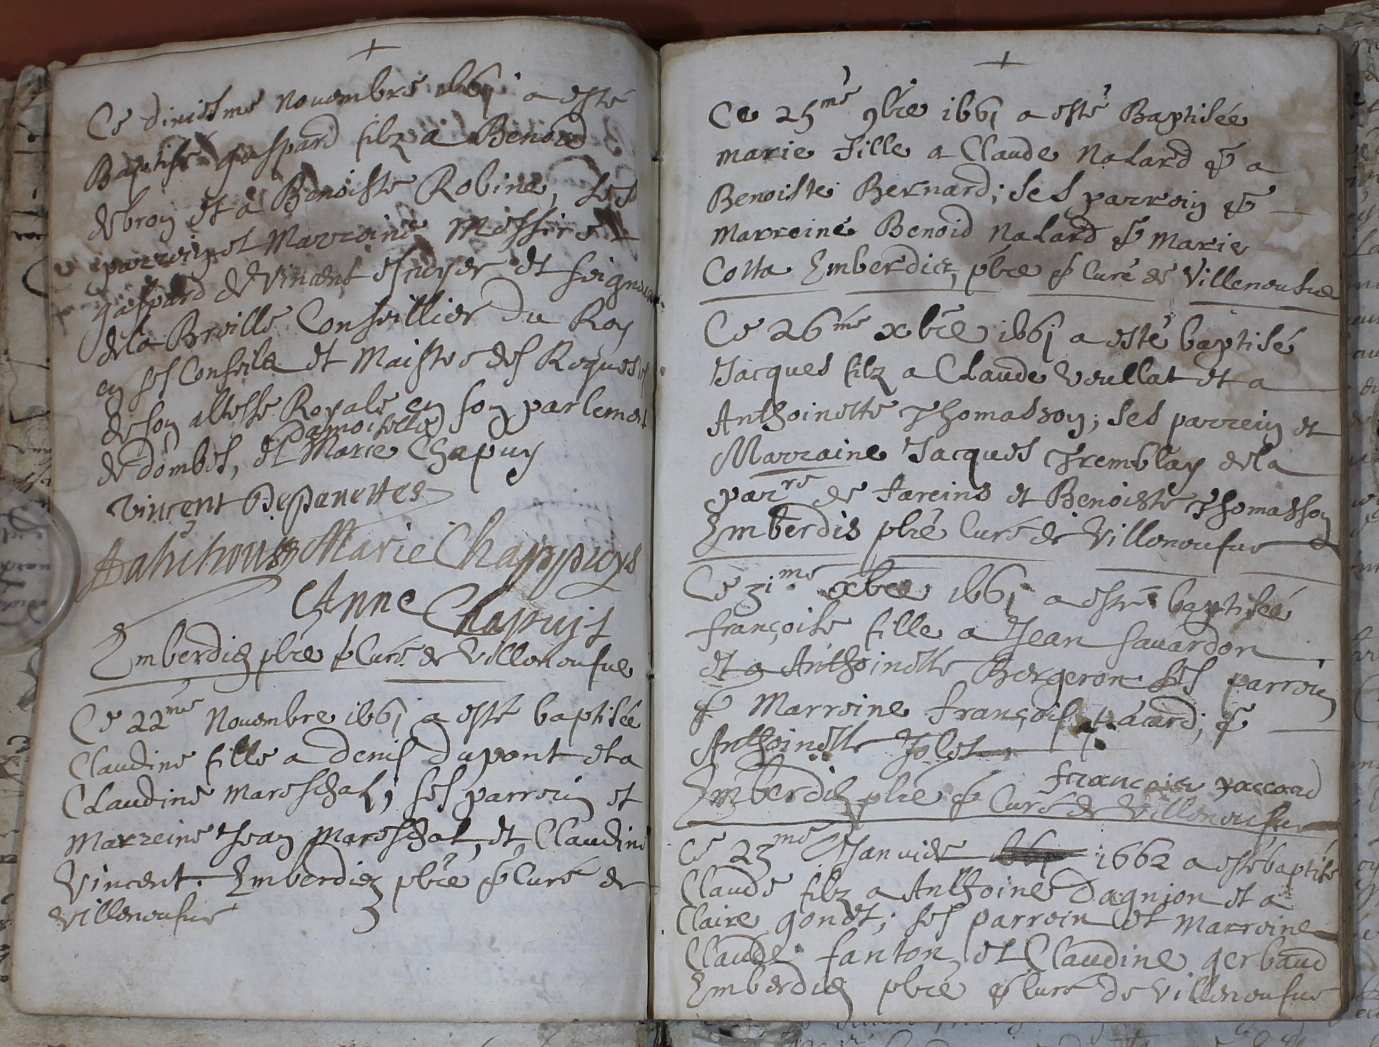 Ce dixiesme Novembre 1661 a esté
Baptisé gaspard filz a Benoid
debron et a Benoiste Robine, Ses
parroin et Marroine Messire
gaspard de Vincent escuyer et seigneur
dela Breille Conseillier Du Roy
en ses Conseils et Maistre des Requestes
de son altesse Royale en son parlement
Damoiselle
de dombes, et Marie Chapuy
Vincent Depanettes
Marie Chappuys
Anne Chapuys
Emberdiez pbre & Curé de Villeneufve
Ce 22me Novembre 1661 a esté baptisée
Claudine fille a denis Dupont et a
Claudine Mareschal; ses parroin et
Marreine Jean Mareschal, et Claudine
Vincent. Emberdiez pbre & Curé de
Villeneufve
Ce 25me 9bre 1661 a esté Baptisée
marie Fille a Claude Nalard & a
Benoiste Bernard; ses parroin &
Marreine Benoid Nalard & Marie
Cotta Emberdiez, pbre & Curé de Villeneufve
Ce 26me xbre 1661 a esté baptisé
Jacques filz a Claude Voullat et a
Anthoinette Thomasson; ses parrein et
Marraine Jacques Tremblay dela
parre de fareins et Benoiste Thomasson
Emberdiez pbre Curé de Villeneufve
Ce 31me xbre 1661 a esté baptisée
françoise fille a Jean Savardon
et a Anthoinette Bergeron ses parroin
& Marroine François pacard; &
Anthoinette Jolet
françois paccard
Emberdiez pbre & Curé de Villeneufve
Ce 23me Janvier 1662 a esté baptisé
Claude filz a Anthoine Dagnion et a
Claire gonet; ses parroin et Marroine
Claude fanton et Claudine gerbaud
Emberdiez pbre & Curé de Villeneufve